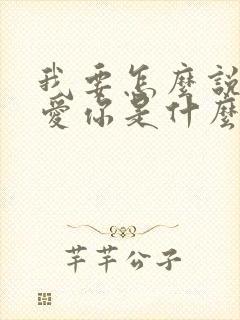 我要怎麼說
愛你是什麼
芊芊公子